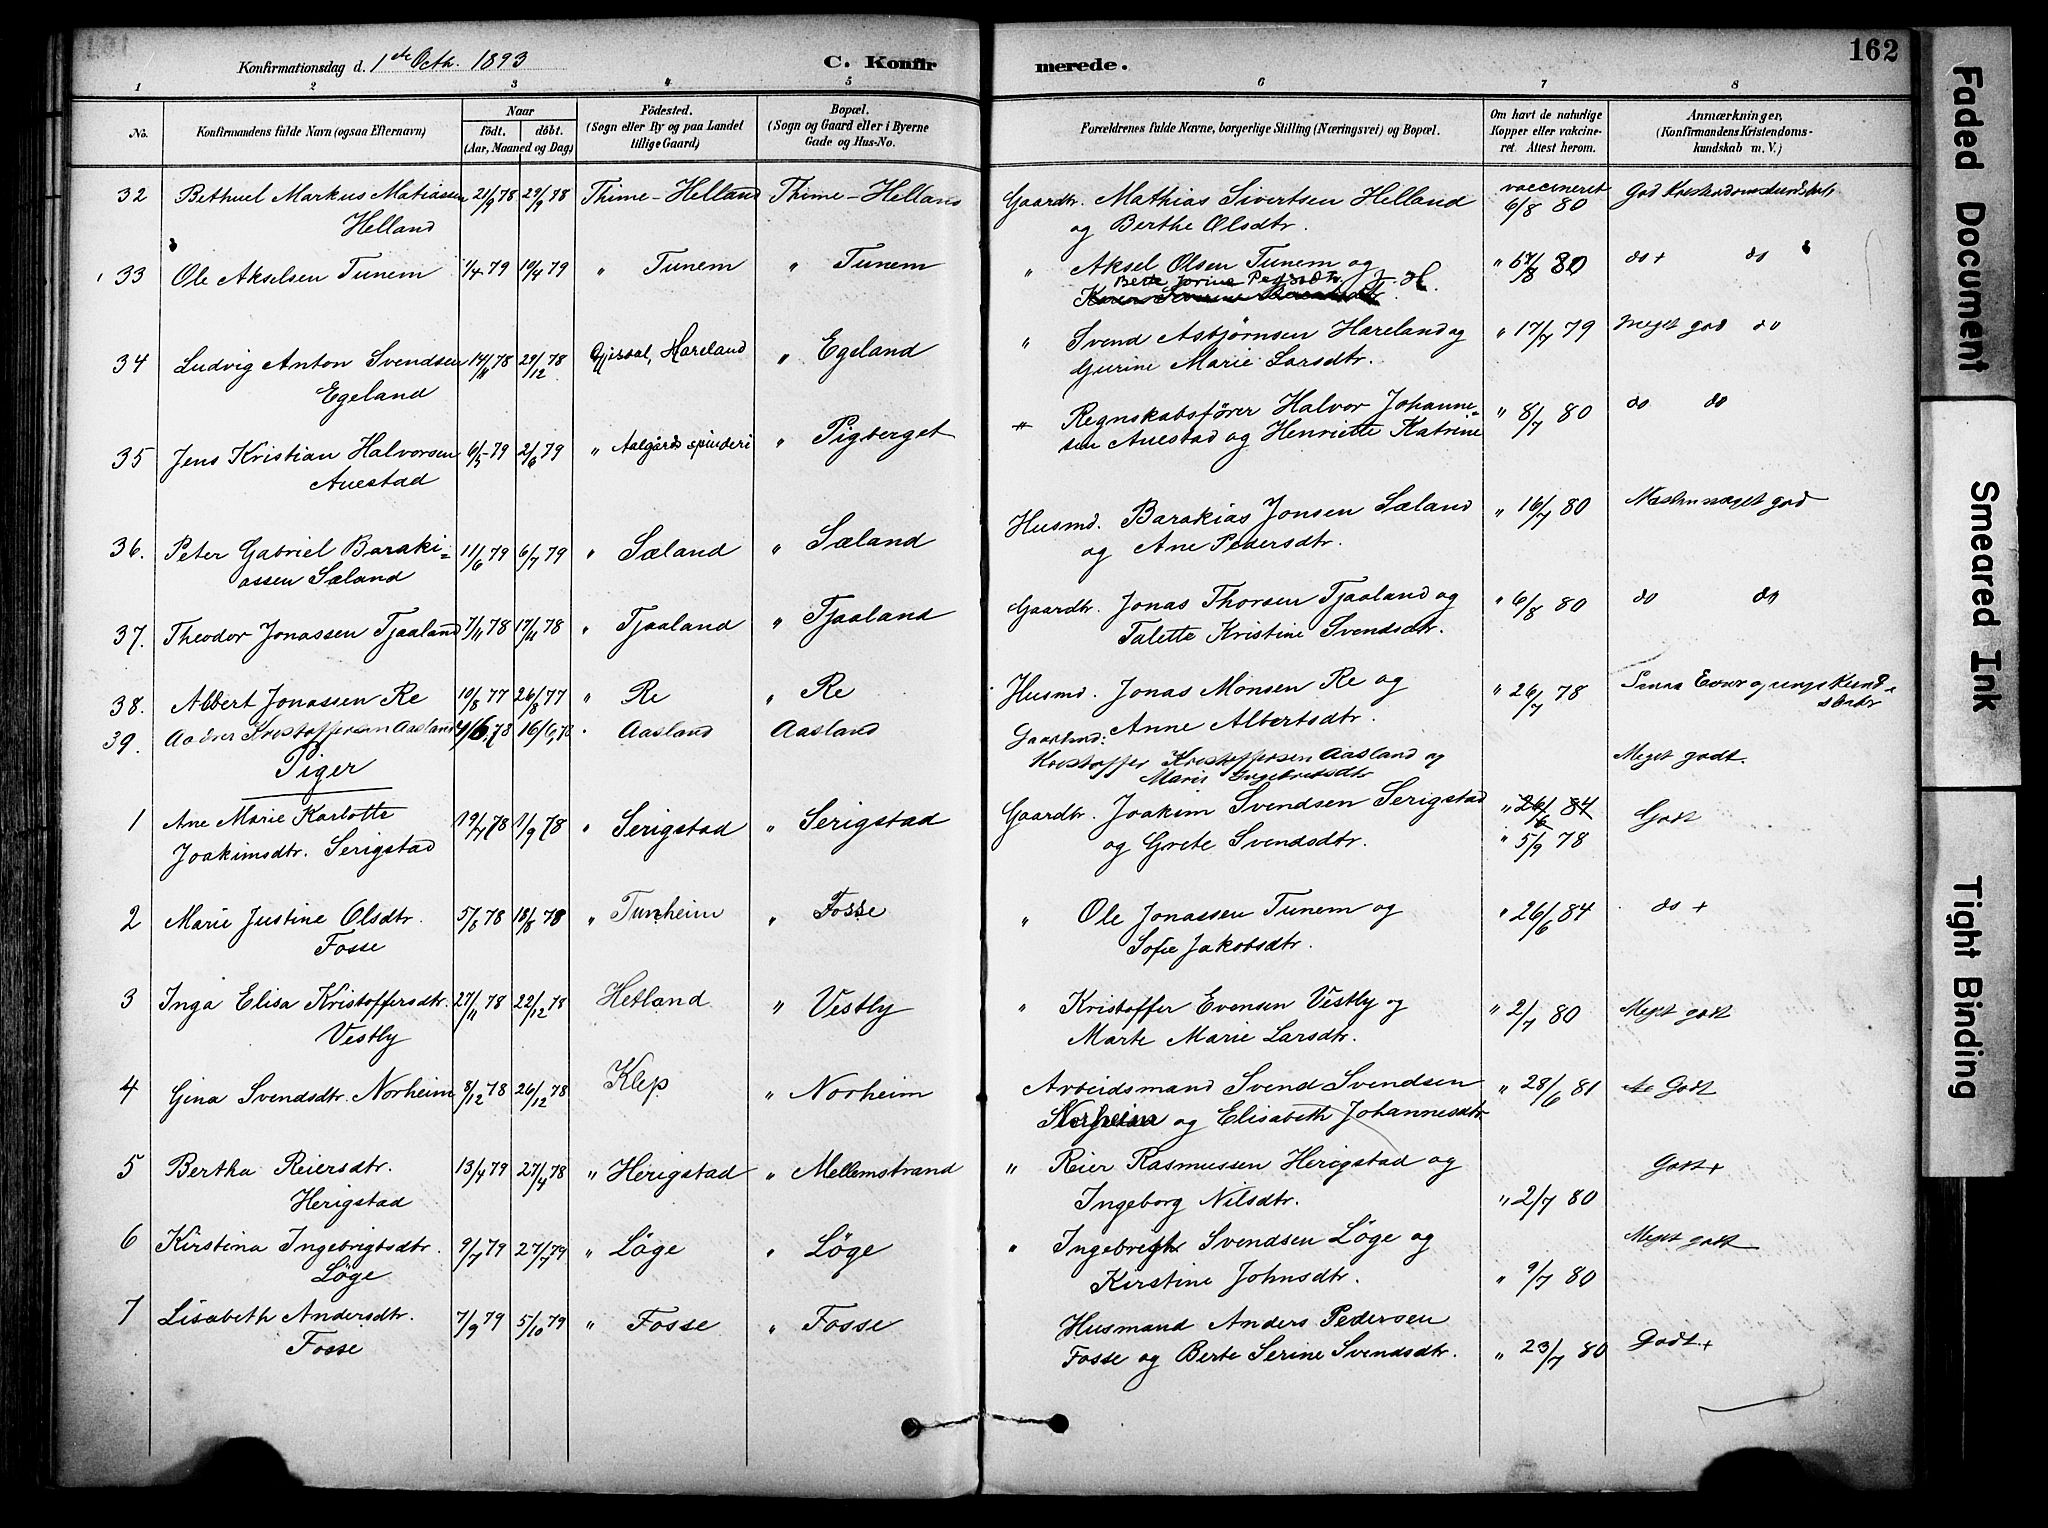 Konfirmationsdag d. 1ste Octb. 1893
C. Konfirmerede.
162
1 2 3 4 5 6 7 8
No. Konfirmandens fulde Navn (ogsaa Efternavn) Naar födt, döbt. (Aar, Maaned og Dag) Födested. (Sogn eller By og paa Landet tillige Gaard) Bopæl. (Sogn og Gaard eller i Byerne Gade og Hus-No. Forældrenes fulde Navne, borgerlige Stilling (Næringsvei) og Bopæl. Om havt de naturlige Kopper eller vakcineret. Attest herom. Anmærkninger, (Konfirmandens Kristendomskundskab m. V.)
32 Bethuel Markus Matiassen 21/9 78 29/9 78 Thime-Helland Thime-Helland Gaardbr. Mathias Sivertsen Helland vaccineret 6/8 80 God Kristendomskundskab
Helland og Berthe Olsdtr.
33 Ole Akselsen Tunem 1/4 79 10/4 79 " Tunem " Tunem " Aksel Olsen Tunem og " 80 do + do
Berte Jorine Pedersdtr. J. H.
34 Ludvig Anton Svendsen 14/11 78 29/12 78 Gjesdal, Hareland " Egeland " Svend Asbjørnsen Hareland og " 17/7 79 Meget god do
Egeland Gurine Marie Larsdtr.
35 Jens Kristian Halvorsen 6/5 79 2/6 79 " Aalgaards spinderi " Pigberget " Regnskabsfører Halvor Johanne- " 8/7 80 do do
Auestad sen Auestad og Henriette Katrine
36. Peter Gabriel Baraki- 11/6 79 6/7 79 " Sæland " Sæland Husmd. Barakias Jonsen Sæland " 16/7 80 Næsten meget god
assen Sæland og Ane Pedersdtr.
37. Theodor Jonassen Tjaaland 7/11 78 17/11 78 " Tjaaland " Tjaaland Gaardbr. Jonas Thorsen Tjaaland og " 6/8 80 do do
Talette Kristine Svendsdtr.
38. Albert Jonassen Re 10/8 77 26/8 77 " Re " Re Husmd. Jonas Monsen Re og " 26/7 78
Anne Albertsdtr.
39. Kristoffersen Aasland 4/6 78 16/6 78 " Aasland Aasland Gaardmd: Kristoffer Kristoffersen Aasland og Meget godt.
Marie Ingebretsdtr
Piger
1 Ane Marie Karlotte 19/7 78 1/9 78 " Serigstad " Serigstad Gaardbr. Joakim Svendsen Serigstad " 26/6 84 Godt
Joakimsdtr. Serigstad og Grete Svendsdtr. " 5/9 78
2 Marie Justine Olsdtr. 5/8 78 18/8 78 " Tunheim " Fosse " Ole Jonassen Tunem og " 26/6 84 do +
Fosse Sofie Jakobsdtr.
3 Inga Elisa Kristoffersdtr. 27/11 78 22/12 78 Hetland " Vestly " Kristoffer Evensen Vestly og " 2/7 80 Meget godt
Vestly Marte Marie Larsdtr.
4 Gina Svendsdtr. Norheim 8/12 78 26/12 78 Klep " Norheim Arbeidsmand Svend Svendsen " 28/6 81 Godt
Norheim og Elisabeth Johannesdtr.
5 Bertha Reiersdtr. 13/4 79 27/4 78 " Herigstad " Mellemstrand " Reier Rasmussen Herigstad og Godt +
Herigstad Ingeborg Nilsdtr. " 2/7 80
6 Kirstina Ingebrigtsdtr. 9/7 79 27/7 79 " Löge " Löge " Ingebregt Svendsen Löge og Meget godt
Löge Kirstine Johnsdtr. " 9/7 80
7 Lisabeth Andersdtr. 7/9 79 5/10 79 " Fosse " Fosse Husmand Anders Pedersen
Fosse Fosse og Berte Serine Svendsdtr. " 23/7 80 Godt. +
Faded Document
Smeared Ink
Tight Binding